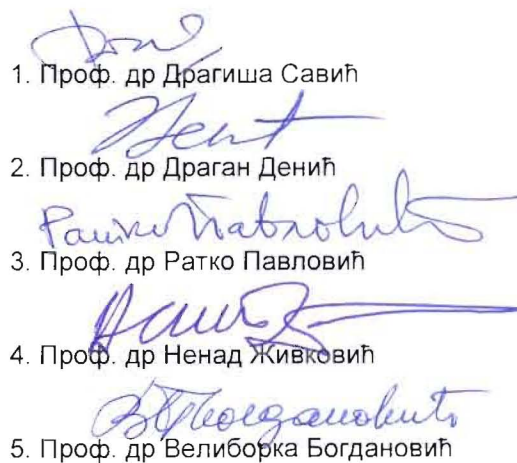 1. Проф. др Драгиша Савић
2. Проф. др Драган Денић
Ратко Павловић
3. Проф. др Ратко Павловић
4. Проф. др Ненад Живковић
ВБогдановић
5. Проф. др Велиборка Богдановић